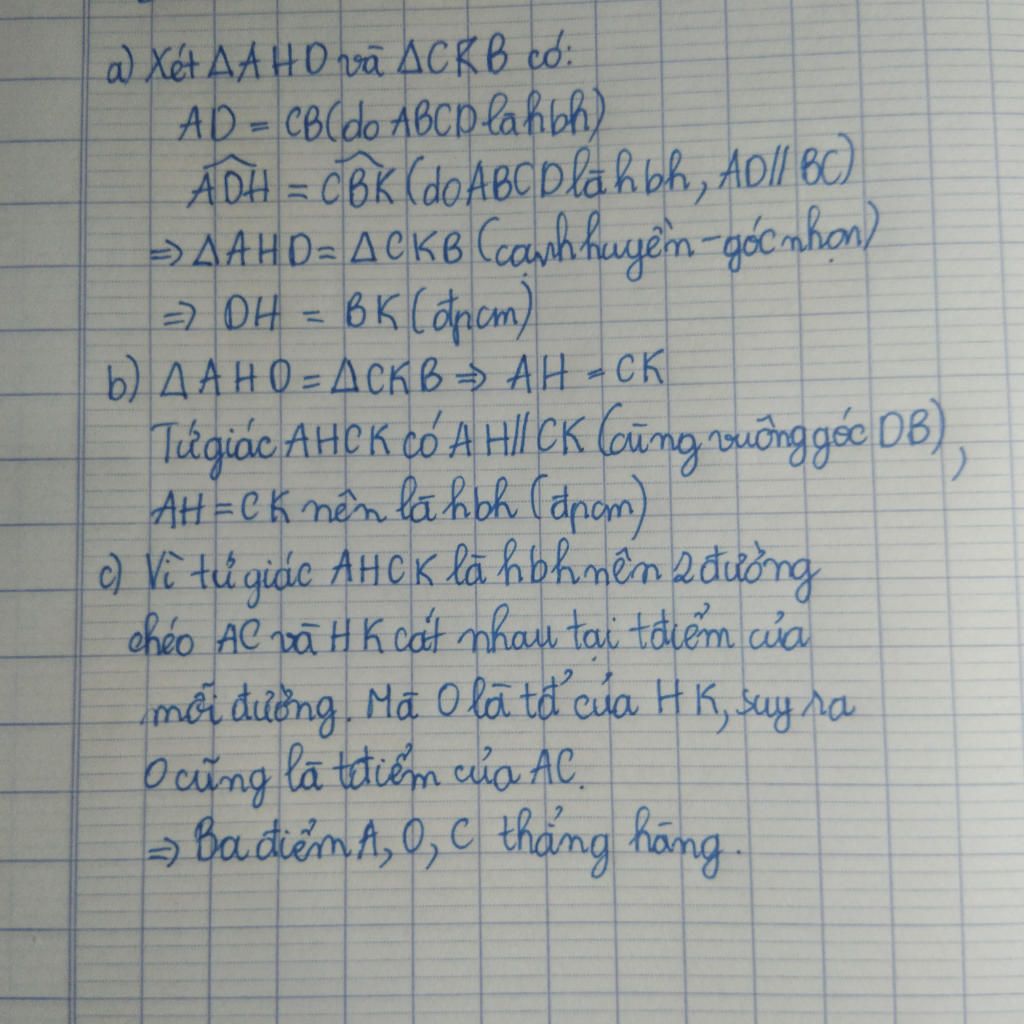 a) Xét ΔAHD và ΔCKB có:
AD = CB (do ABCD là hbh)
$\widehat{ADH}$ = $\widehat{CBK}$ (do ABCD là hbh, AD // BC)
⇒ ΔAHD = ΔCKB (cạnh huyền - góc nhọn)
⇒ DH = BK (đpcm)
b) ΔAHD = ΔCKB ⇒ AH = CK
Tứ giác AHCK có AH // CK (cùng vuông góc DB),
AH = CK nên là hbh (đpcm)
c) Vì tứ giác AHCK là hbh nên 2 đường
chéo AC và HK cắt nhau tại tđiểm của
mỗi đường. Mà O là tđ' của HK, suy ra
O cũng là tđiểm của AC.
⇒ Ba điểm A, O, C thẳng hàng.